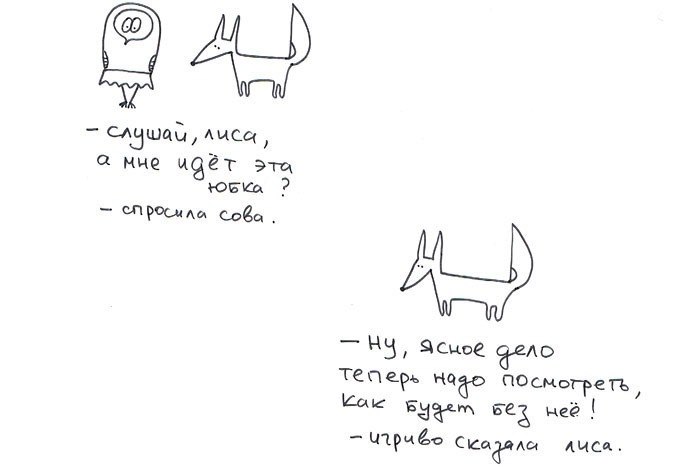 – слушай, лиса,
а мне идёт эта
юбка?
– спросила сова.
– Ну, ясное дело
теперь надо посмотреть,
как будет без неё!
– игриво сказала лиса.